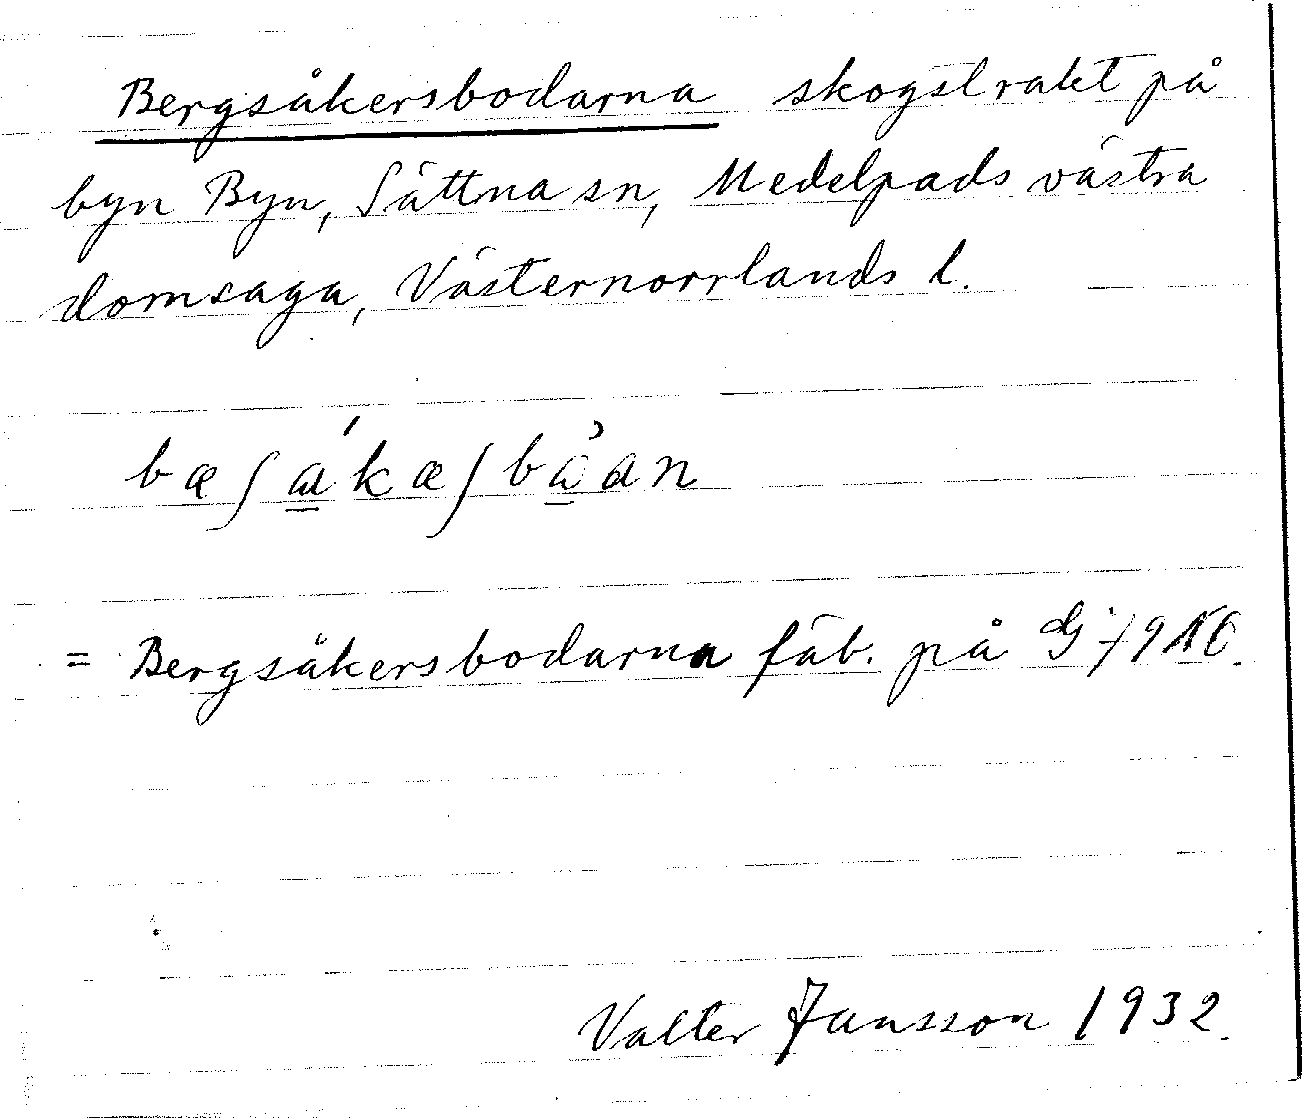 Bergsåkersbodarna skogstrakt på
byn Byn, Sättna sn, Medelpads västra
domsaga, Västernorrlands l.
bæʃá̲kæʃbå̲̀an
= Bergsåkersbodarna fäb. på
Valter Jansson 1932.